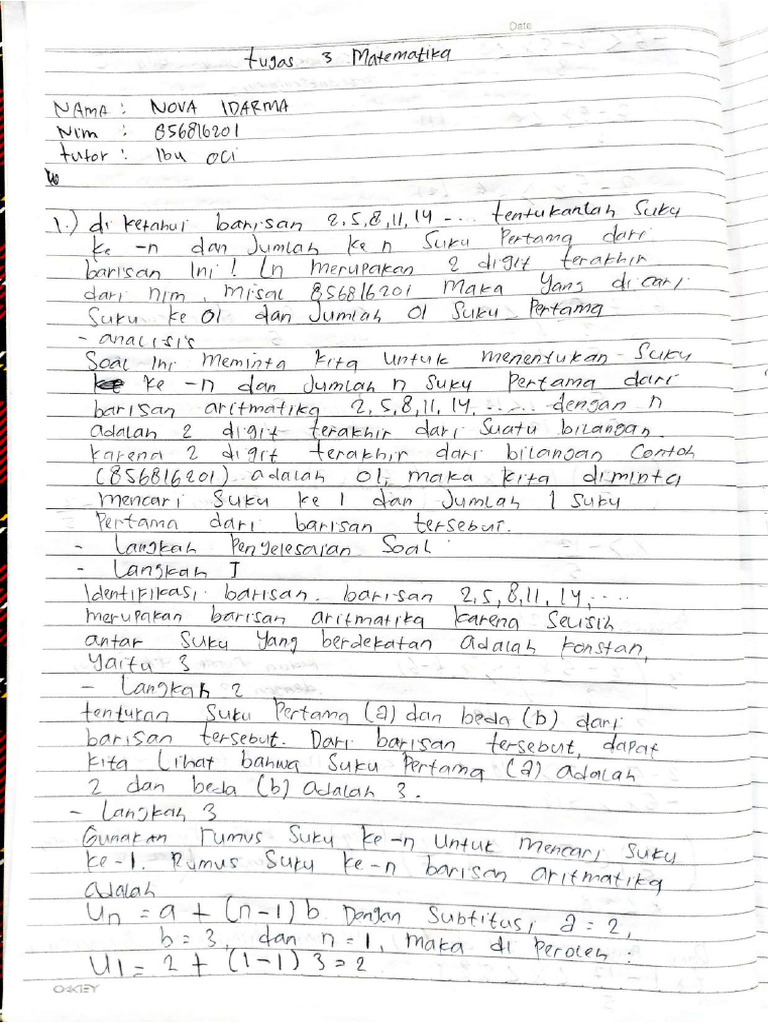 Date
Tugas 3 Matematika
NAMA : NOVA IDARMA
Nim : 856816201
tutor : Ibu oci
1.) di ketahui barisan 2,5,8,11,14 .... tentukanlah Suku
ke -n dan Jumlah ke n Suku Pertama dari
barisan Ini! (n merupakan 2 digit terakhir
dari nim, misal 856816201 maka yang di cari
Suku ke 01 dan Jumlah 01 Suku Pertama
- analisis
Soal Ini meminta kita untuk menentukan Suku
ke -n dan Jumlah n Suku Pertama dari
barisan aritmatika 2,5,8,11,14, ...... dengan n
adalah 2 digit terakhir dari Suatu bilangan.
karena 2 digit terakhir dari bilangan Contoh
(856816201) adalah 01, maka kita diminta
mencari Suku ke 1 dan Jumlah 1 Suku
Pertama dari barisan tersebut.
- Langkah Penyelesaian Soal
- Langkah I
Identifikasi barisan. barisan 2,5,8,11,14,....
merupakan barisan aritmatika karena Selisih
antar Suku yang berdekatan adalah konstan,
yaitu 3
- Langkah 2
tentukan Suku Pertama (a) dan beda (b) dari
barisan tersebut. Dari barisan tersebut, dapat
kita Lihat bahwa Suku Pertama (a) adalah
2 dan beda (b) adalah 3.
- Langkah 3
Gunakan rumus Suku ke -n Untuk Mencari Suku
ke-1. Rumus Suku ke-n barisan aritmatika
adalah
Un = a + (n-1) b. Dengan Subtitusi a = 2,
b = 3, dan n = 1, maka di Peroleh :
U1 = 2 + (1-1) 3 = 2
OKEY